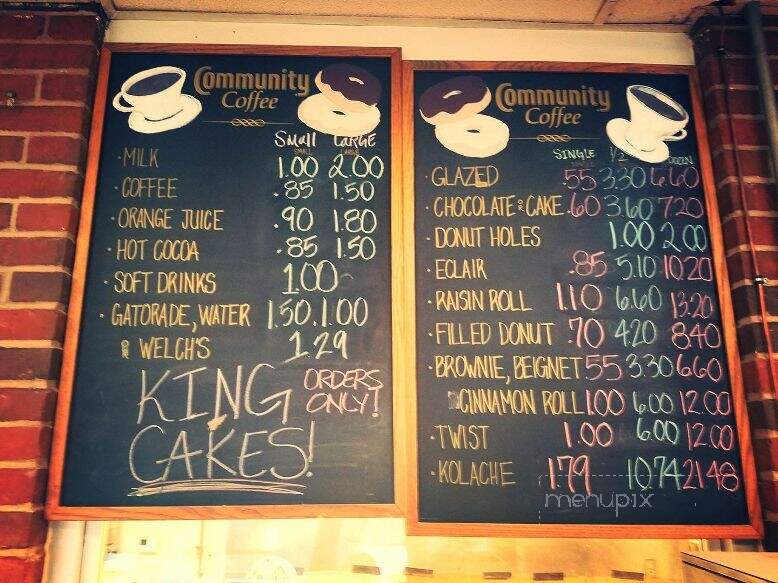 Community
Coffee
Small LARGE
· MILK 1.00 2.00
· COFFEE .85 1.50
· ORANGE JUICE .90 1.80
· HOT COCOA .85 1.50
· SOFT DRINKS 1.00
· GATORADE, WATER 1.50, 1.00
& WELCH'S 1.29
KING ORDERS
CAKES! ONLY!
Community
Coffee
SINGLE 1/2 DOZEN
· GLAZED .55 3.30 6.60
· CHOCOLATE OR CAKE .60 3.60 7.20
· DONUT HOLES 1.00 2.00
· ECLAIR .85 5.10 10.20
· RAISIN ROLL 1.10 6.60 13.20
· FILLED DONUT .70 4.20 8.40
· BROWNIE, BEIGNET .55 3.30 6.60
CINNAMON ROLL 1.00 6.00 12.00
· TWIST 1.00 6.00 12.00
· KOLACHE 1.79 10.74 21.48
menupix